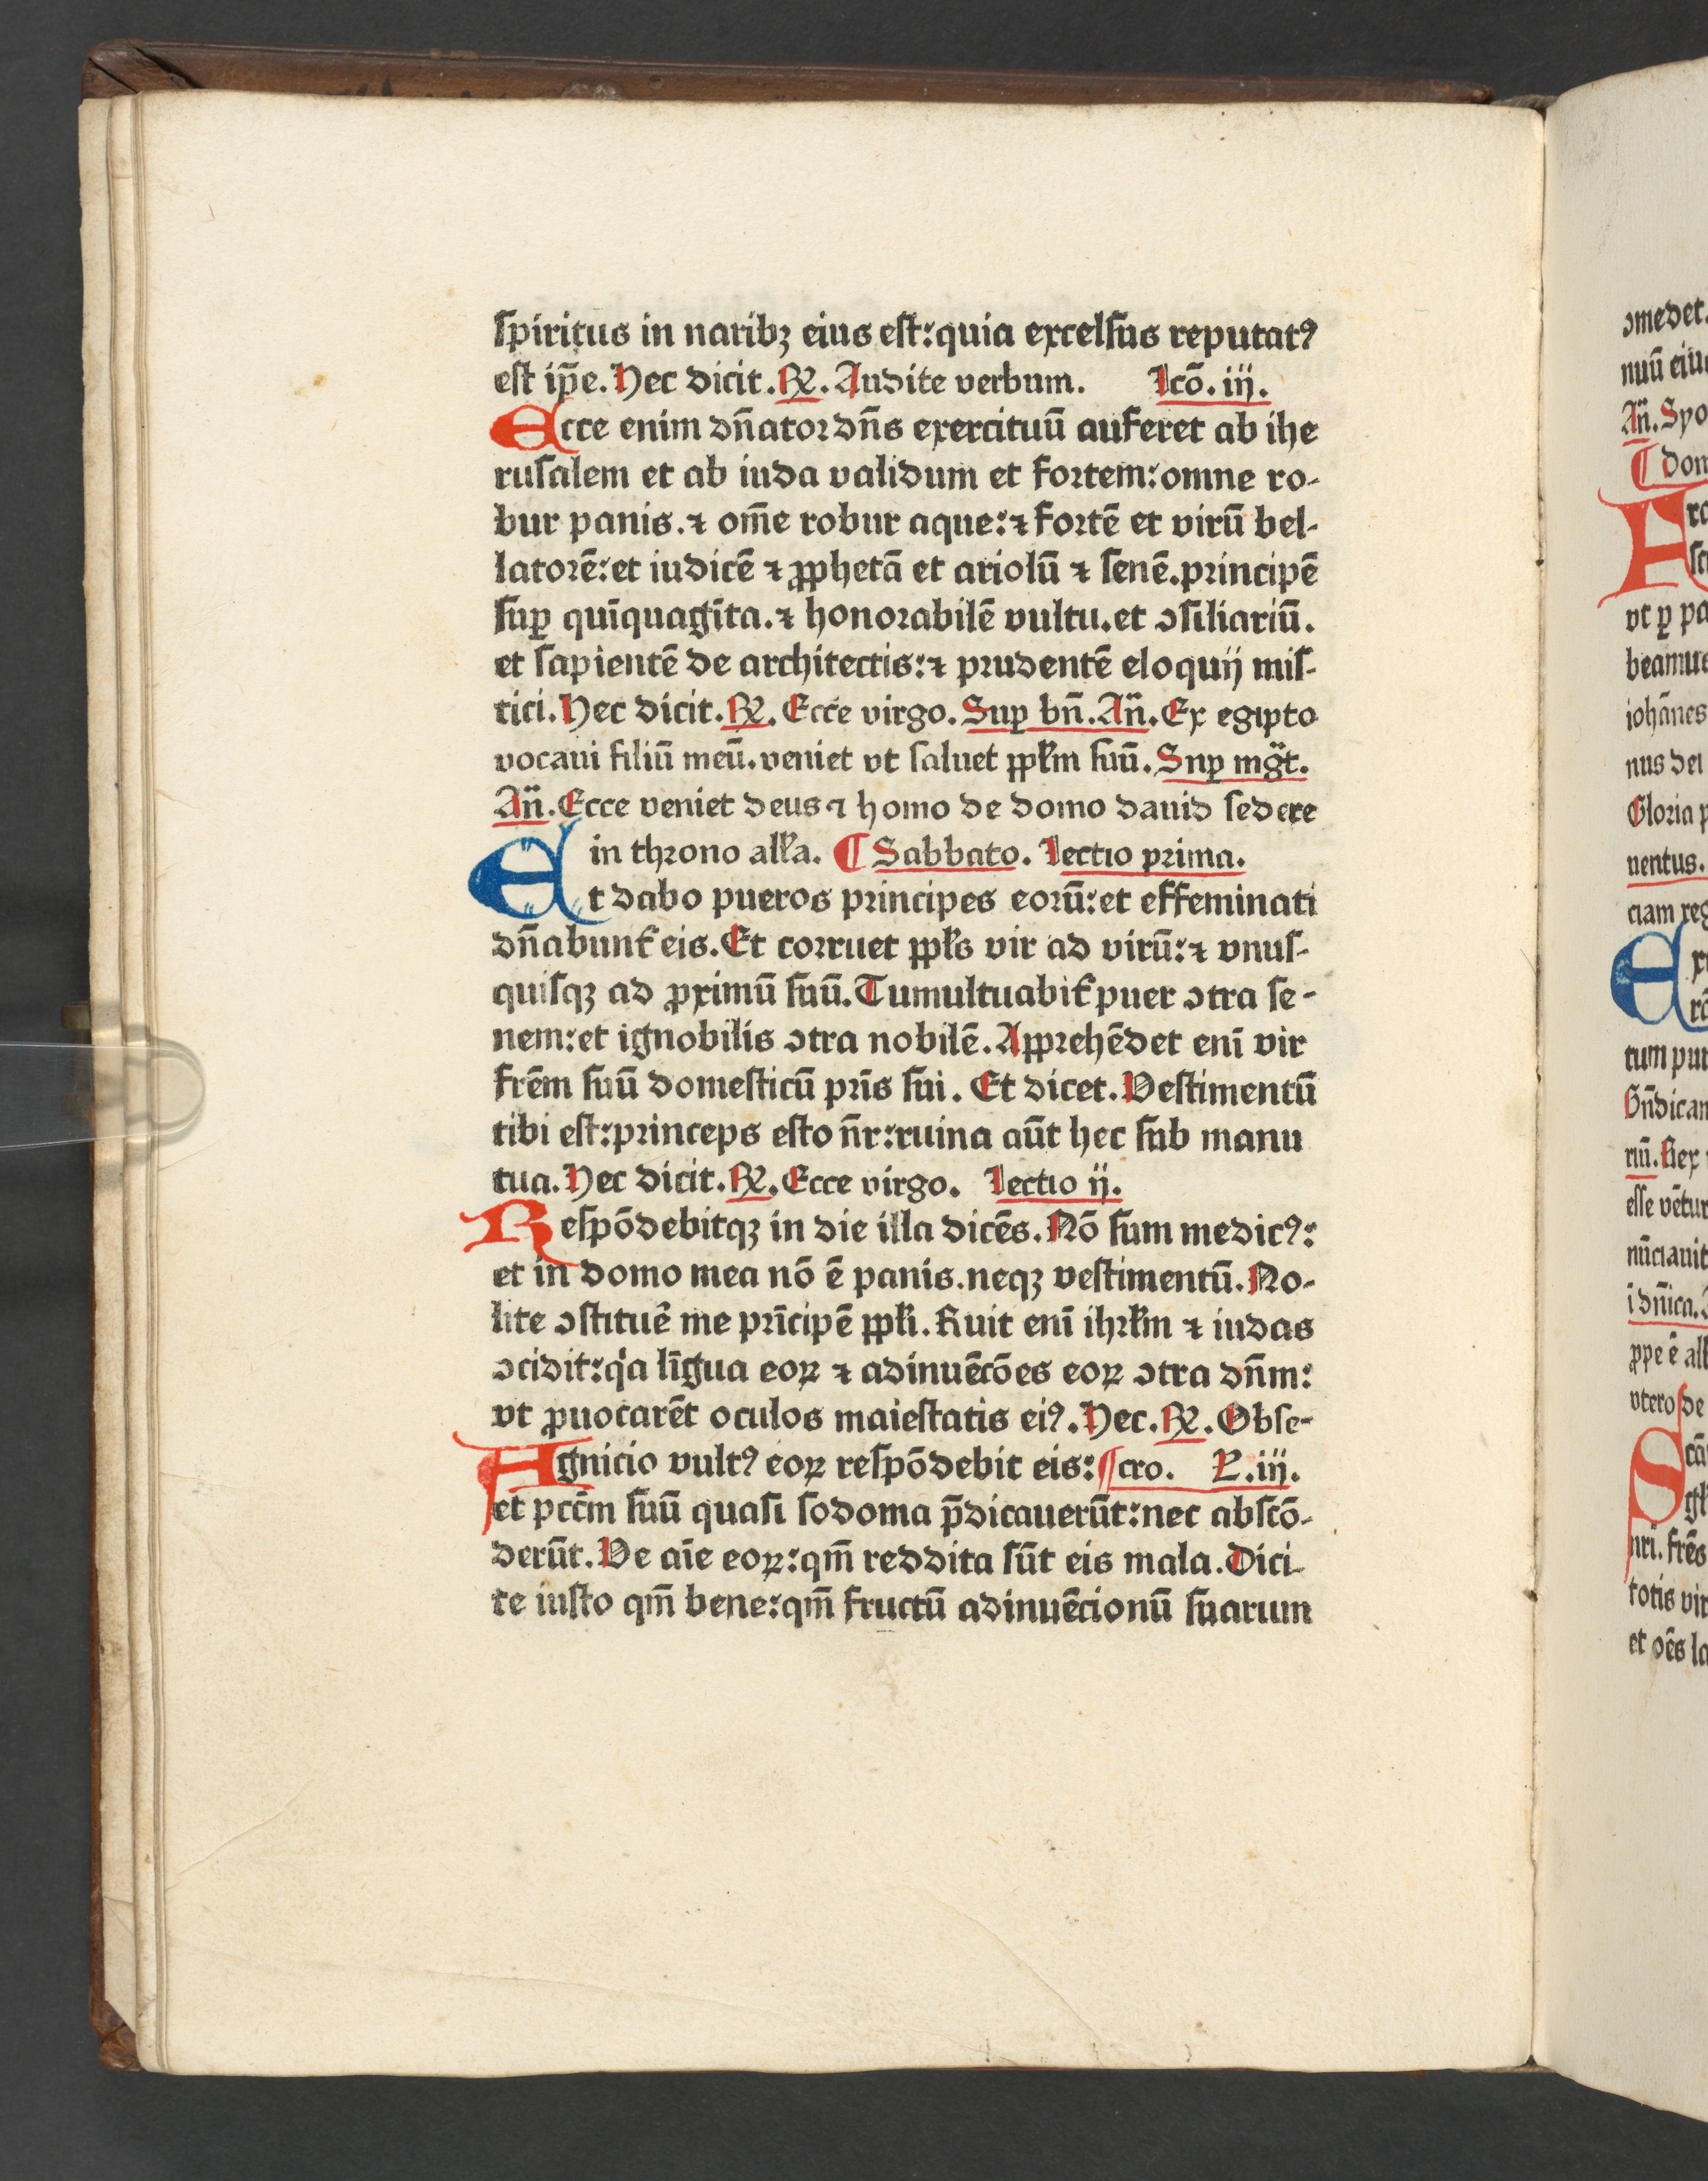 ſpiritus in naribꝫ eius eſt:quia excelſus reputatꝰ
eſt ip̄e. Hec dicit. ℟. Audite verbum. Lcō. iij.
Ecce enim dn̄atoꝛ dn̄s exercituū auferet ab ihe
ruſalem et ab iuda validum et foꝛtem: omne ro-
bur panis. ⁊ om̄e robur aque: ⁊ foꝛtē et virū bel-
latoꝛē: et iudicē ⁊ ꝓphetā et ariolū ⁊ ſenē. pꝛincipē
ſuꝑ quīquagīta. ⁊ honoꝛabilē vultu. et ꝯſiliariū.
et ſapientē de architectis: ⁊ pꝛudentē eloquij miſ-
tici. Hec dicit. ℟. Ecce virgo. Suꝑ bn̄. An̄. Ex egipto
vocaui filiū meū. veniet vt ſaluet ppłm ſuū. Suꝑ mḡt.
An̄. Ecce veniet deus ⁊ homo de domo dauid ſedere
in thꝛono alła. ¶ Sabbato. Lectio pꝛima.
Et dabo pueros pꝛincipes eoꝛū: et effeminati
dn̄abunt̉ eis. Et coꝛruet ppłs vir ad virū: ⁊ vnuſ-
quiſqꝫ ad ꝓximū ſuū. Tumultuabit̉ puer ꝯtra ſe-
nem: et ignobilis ꝯtra nobilē. Appꝛehēdet enī vir
frēm ſuū domeſticū pr̄is ſui. Et dicet. Veſtimentū
tibi eſt: pꝛinceps eſto nr̄: ruina aūt hec ſub manu
tua. Hec dicit. ℟. Ecce virgo. Lectio ij.
Reſpōdebitqꝫ in die illa dicēs. Nō ſum medicꝰ:
et in domo mea nō ē panis. neqꝫ veſtimentū. No-
lite ꝯſtituē me pꝛīcipē ppłi. Ruit enī ihꝛłm ⁊ iudas
ꝯcidit: qͥa līgua eoꝝ ⁊ adinuēcōes eoꝝ ꝯtra dn̄m:
vt ꝓuocarēt oculos maieſtatis eiꝰ. Hec. ℟. Obſe-
Agnicio vultꝰ eoꝝ reſpōdebit eis: ¶cro. L. iij.
et pcc̄m ſuū quaſi ſodoma p̄dicauerūt: nec abſcō-
derūt. Ve aīe eoꝝ: qm̄ reddita ſūt eis mala. Dici-
te iuſto qm̄ bene: qm̄ fructū adinuēcionū ſuarum
ꝯmedet.
An̄. Spo
vt ꝑ pa
beamus
iohānes
nus dei
Gloꝛia p
uentus.
ciam reg
tum pur
riū. Rex
eſſe vētur
nūciauit
i dn̄ica.
ꝓpe ē all
vtero de
nri. frēs
totis vir
et oēs la